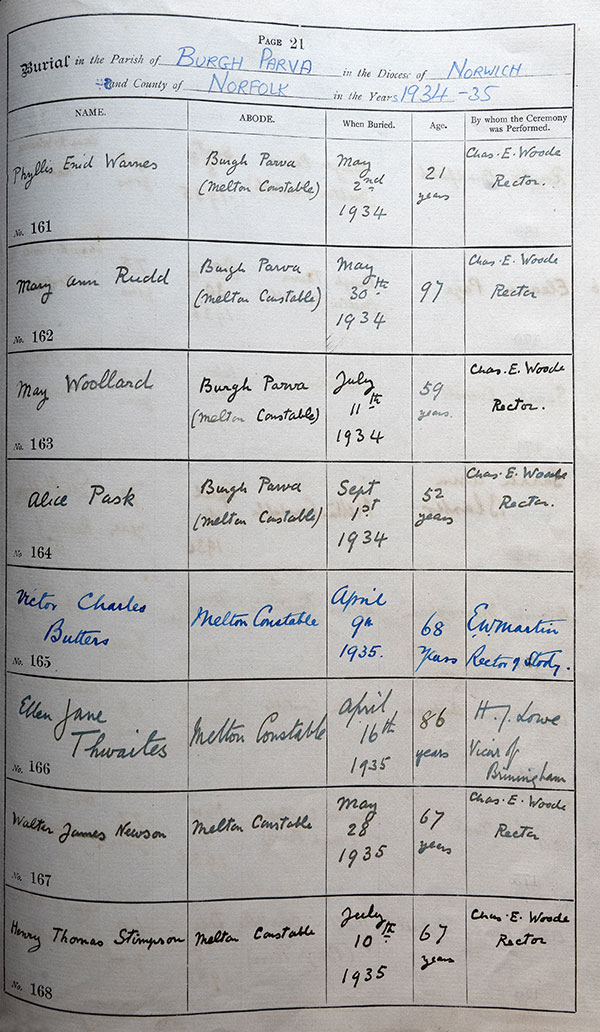 PAGE 21
Burial in the Parish of BURGH PARVA in the Diocese of NORWICH
and County of NORFOLK in the Years 1934-35
NAME. ABODE. When Buried. Age. By whom the Ceremony was Performed.
Phyllis Enid Warnes
No. 161
Burgh Parva
(Melton Constable)
May
2nd
1934
21
years
Chas. E. Woode
Rector.
Mary Ann Rudd
No. 162
Burgh Parva
(Melton Constable)
May
30th
1934
97
Chas. E. Woode
Rector
May Woollard
No. 163
Burgh Parva
(Melton Constable)
July
11th
1934
59
years.
Chas. E. Woode
Rector.
Alice Pask
No. 164
Burgh Parva
(Melton Constable)
Sept
1st
1934
52
years
Chas. E. Woode
Rector.
Victor Charles
Butters
No. 165
Melton Constable
April
9th
1935.
68
Years
E.W. Martin
Rector of Stody.
Ellen Jane
Thwaites
No. 166
Melton Constable
April
16th
1935
86
years
H. J. Lowe
Vicar of
Briningham
Walter James Newson
No. 167
Melton Constable
May
28
1935
67
years
Chas. E. Woode
Rector
Henry Thomas Stimpson
No. 168
Melton Constable
July
10th
1935
67
years
Chas. E. Woode
Rector